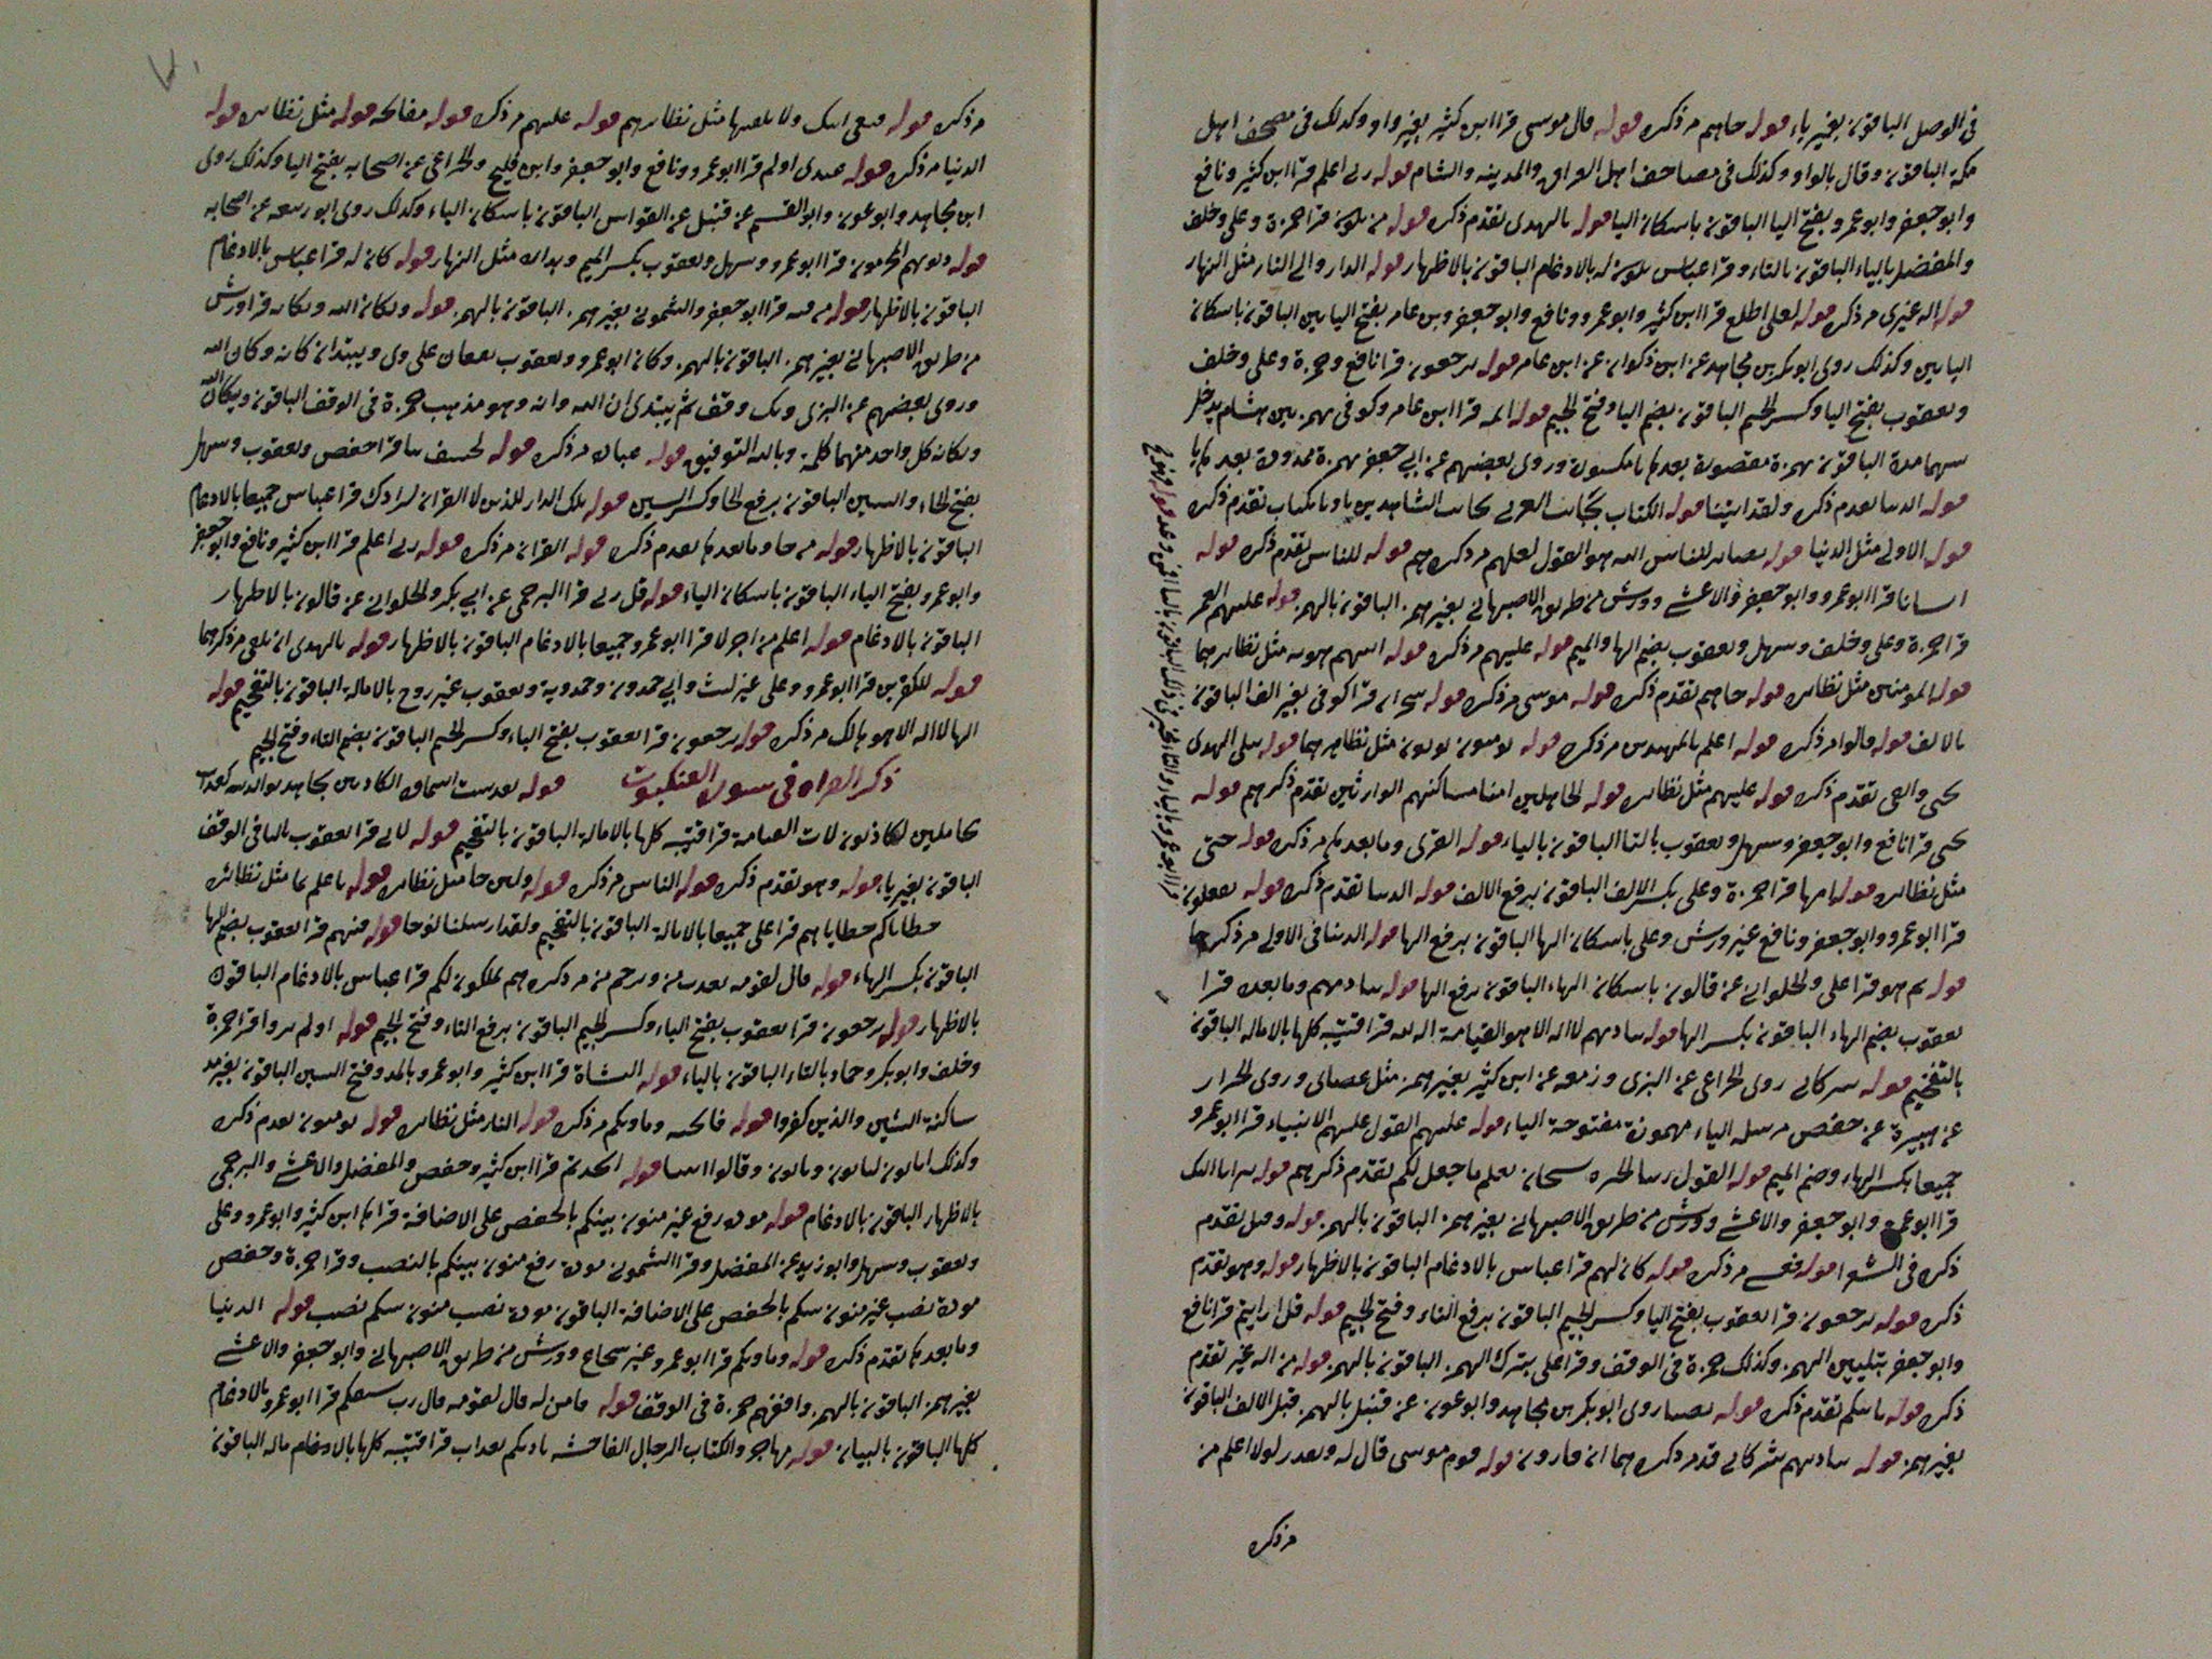 فى الوصل الباقون بغير ياء قوله جاءهم مر ذكره قوله قال موسى قرا ابن كثير بغير واو وكذلك فى مصحف اهل
مكة الباقون وقال بالواو وكذلك فى مصاحف اهل العراق والمدينه والشام قوله ربى اعلم قرا ابن كثير ونافع
وابو جعفر وابو عمرو بفتح اليا الباقون باسكان اليا قوله بالهدى تقدم ذكره قوله من تكون قرا حمزة وعلى وخلف
والمفضل بالياء الباقون بالتاء وقرا عباس تكون له بالادغام الباقون بالاظهار قوله الدار والى النار مثل النهار
قوله اله غيرى مر ذكره قوله لعلى اطلع قرا ابن كثير وابو عمرو ونافع وابو جعفر وبن عامر بفتح الياين الباقون باسكان
الياين وكذلك روى ابو بكر بن مجاهد عن ابن ذكوان عن ابن عامر قوله يرجعون قرا نافع وحمزة وعلى وخلف
ويعقوب بفتح اليا وكسر الجيم الباقون بضم اليا وفتح الجيم قوله ائمة قرا ابن عامر وكوفى بهمزتين هشام يدخل
بينهما مدة الباقون بهمزة مقصورة بعدها يا مكسورة وروى بعضهم عن ابى جعفر بهمزة ممدودة بعدها يا
قوله الدنيا تقدم ذكره ولقد اتينا قوله الكتاب بجانب الغربى كانت الشاهدين تقدم ذكره
قوله الاولى مثل الدنيا قوله بصائر للناس الله هو القول لعلهم مر ذكرهم قوله للناس تقدم ذكره قوله
انشانا قرا ابو عمرو وابو جعفر والاعشى وورش من طريق الاصبهانى بغير همز الباقون بالهمز قوله عليهم العمر
قرا حمزة وعلى وخلف وسهل ويعقوب بضم الها والميم قوله عليهم مر ذكره قوله مثل نظايرهما
قوله المومنين مثل نظايره قوله جاءهم تقدم ذكره قوله موسى مر ذكره قوله سحران قرا كوفى بغير الف الباقون
بالالف قوله قالوا مر ذكره قوله اعلم بالمهتدين مر ذكره قوله يومنون يوتون مثل نظايرهما قوله يتلى الهدى
تقدم ذكره قوله عليهم مثل نظايره قوله الجاهلين امنا مساكنهم الوارثين تقدم ذكرهم قوله
يجبى قرا نافع وابو جعفر وسهل ويعقوب بالتا الباقون بالياء قوله القرى وما بعدها مر ذكره قوله حتى
مثل نظايره قوله امها قرا حمزة وعلى بكسر الالف الباقون برفع الالف قوله الدنيا تقدم ذكره قوله تعقلون
قرا ابو عمرو وابو جعفر ونافع غير ورش وعلى باسكان الها الباقون برفع الها قوله الدنيا فى الاولى مر ذكرهما
قوله ثم هو قرا على والحلوانى عن قالون باسكان الهاء الباقون برفع الها قوله يناديهم وما بعده قرا
يعقوب بضم الهاء الباقون بكسر الها قوله يناديهم لا اله الا هو القيامة اله قرا قتيبه كلها بالاماله الباقون
بالتفخيم قوله شركائى روى الخزاعى عن البزى وزمعه عن ابن كثير بغير همز مثل عصاى وروى الخزاز
عن هبيرة عن حفص مرسله الياء مهموزة مفتوحة الياء قوله عليهم القول عليهم الانبياء قرا ابو عمرو
جميعا بكسر الهاء وضم الميم قوله القول ربنا الخيره سبحان يعلم ما جعل لكم تقدم ذكرهم قوله تبرانا اليك
قرا ابو عمرو وابو جعفر والاعشى وورش من طريق الاصبهانى بغير همز الباقون بالهمز قوله وقيل تقدم
ذكره فى الشعرا قوله فعسى مر ذكره قوله كان لهم قرا عباس بالادغام الباقون بالاظهار قوله وهو تقدم
ذكره قوله يرجعون قرا يعقوب بفتح اليا وكسر الجيم الباقون برفع التاء وفتح الجيم قوله قل ارايتم قرا نافع
وابو جعفر بتليين الهمز وكذلك حمزة فى الوقف وقرا على بترك الهمز الباقون بالهمز قوله من اله غير تقدم
ذكره قوله ياتيكم تقدم ذكره قوله بضياء روى ابو بكر بن مجاهد وابو عون عن قنبل بالهمز قبل الالف الباقون
بغير همز قوله يناديهم شركائى قد مر ذكرهما ان قارون قوله قوم موسى قال له ويقدر لولا اعلم من
مر ذكره
مر ذكره قوله فبغى اليك ولا يلقيها مثل نظايرهم قوله عليهم مر ذكره قوله مفاتحه قوله مثل نظايره قوله
الدنيا مر ذكره قوله عندى اولم قرا ابو عمرو ونافع وابو جعفر وابن فليح والخزاعى عن اصحابه بفتح اليا وكذلك روى
ابن مجاهد وابو عون وابو القسم عن قنبل عن القواس الباقون باسكان الياء وكذلك روى ابو ربيعه عن اصحابه
قوله ذنوبهم المجرمون قرا ابو عمرو وسهل ويعقوب بكسر الميم وبداره مثل النهار قوله كان له قرا عباس بالادغام
الباقون بالاظهار قوله من فئه قرا ابو جعفر والشمونى بغير همز الباقون بالهمز قوله ويكان الله ويكانه قرا ورش
من طريق الاصبهانى بغير همز الباقون بالهمز وكان ابو عمرو ويعقوب يقفان على وى ويبتدان كانه وكان الله
وروى بعضهم عن البزى ويك وقف ثم يبتدى ان الله وانه وهو مذهب حمزة فى الوقف الباقون ويكان الله
ويكانه كل واحد منهما كلمة وبالله التوفيق قوله عباده مر ذكره قوله لخسف بنا قرا حفص ويعقوب وسهل
بفتح الخاء والسين الباقون برفع الخا وكسر السين قوله تلك الدار للذين لا القران لرادك قرا عباس جميعا بالادغام
الباقون بالاظهار قوله من جا وما بعدها تقدم ذكره قوله القران مر ذكره قوله ربى اعلم قرا ابن كثير ونافع وابو جعفر
وابو عمرو بفتح الياء الباقون باسكان الياء قوله قل ربى قرا البرجمى عن ابى بكر والحلوانى عن قالون بالاظهار
الباقون بالادغام قوله اعلم من اخر لا قرا ابو عمرو جميعا بالادغام الباقون بالاظهار قوله بالهدى ان يلقى مر ذكرهما
قوله للكفرين قرا ابو عمرو وعلى غير ليث وابى حمدون وحمدوية ويعقوب غير روح بالاماله الباقون بالتفخيم قوله
الها لا اله الا هو هالك مر ذكره قوله يرجعون قرا يعقوب بفتح الياء وكسر الجيم الباقون بضم التاء وفتح الجيم
ذكر القراه فى سورة العنكبوت قوله
بحاملين لكاذبون لات القيامة قرا قتيبه كلها بالاماله الباقون بالتفخيم قوله قرا يعقوب باليا فى الوقف
الباقون بغير ياء قوله وهو تقدم ذكره قوله الناس مر ذكره قوله ولين جا مثل نظايره قوله باعلم بما مثل نظائره
خطاياكم خطاياهم قرا على جميعا بالامالة الباقون بالتفخيم ولقد ارسلنا نوحا قوله فيهم قرا يعقوب بضم الها
الباقون بكسر الهاء قوله قال لقومه يعذب من ويرحم من مر ذكرهم يملكون لكم قرا عباس بالادغام الباقون
بالاظهار قوله يرجعون قرا يعقوب بفتح الياء وكسر الجيم الباقون برفع التاء وفتح الجيم قوله اولم يروا قرا حمزة
وخلف وابو بكر وحماد بالتاء الباقون بالياء قوله النشاة قرا ابن كثير وابو عمرو بالمد وفتح الشين الباقون بغير مد
ساكنة الشين والذين كفروا قوله وماويكم مر ذكره قوله النار مثل نظايره قوله يومنون تقدم ذكره
وكذلك وقالوا ايتنا قوله اتخذتم قرا ابن كثير وحفص والمفضل والاعشى والبرجمى
بالاظهار الباقون بالادغام قوله مودة رفع غير منون بينكم بالخفض على الاضافة قراها ابن كثير وابو عمرو وعلى
ويعقوب وسهل وابو زيد عن المفضل وقرا الشمونى مودة رفع منون بينكم بالنصب وقرا حمزة وحفص
مودة نصب غير منون بينكم بالخفض على الاضافة الباقون مودة نصب منون بينكم نصب قوله الدنيا
وما بعدها تقدم ذكره قوله وماويكم قرا ابو عمرو غير شجاع وورش من طريق الاصبهانى وابو جعفر والاعشى
بغير همز الباقون بالهمز وافقهم حمزة فى الوقف قوله فامن له قال لقومه قال رب قرا ابو عمرو بالادغام
كلها الباقون بالبيان قوله مهاجر والكتاب الرجال الفاحشه ناديكم بعذاب قرا قتيبه كلها الباقون